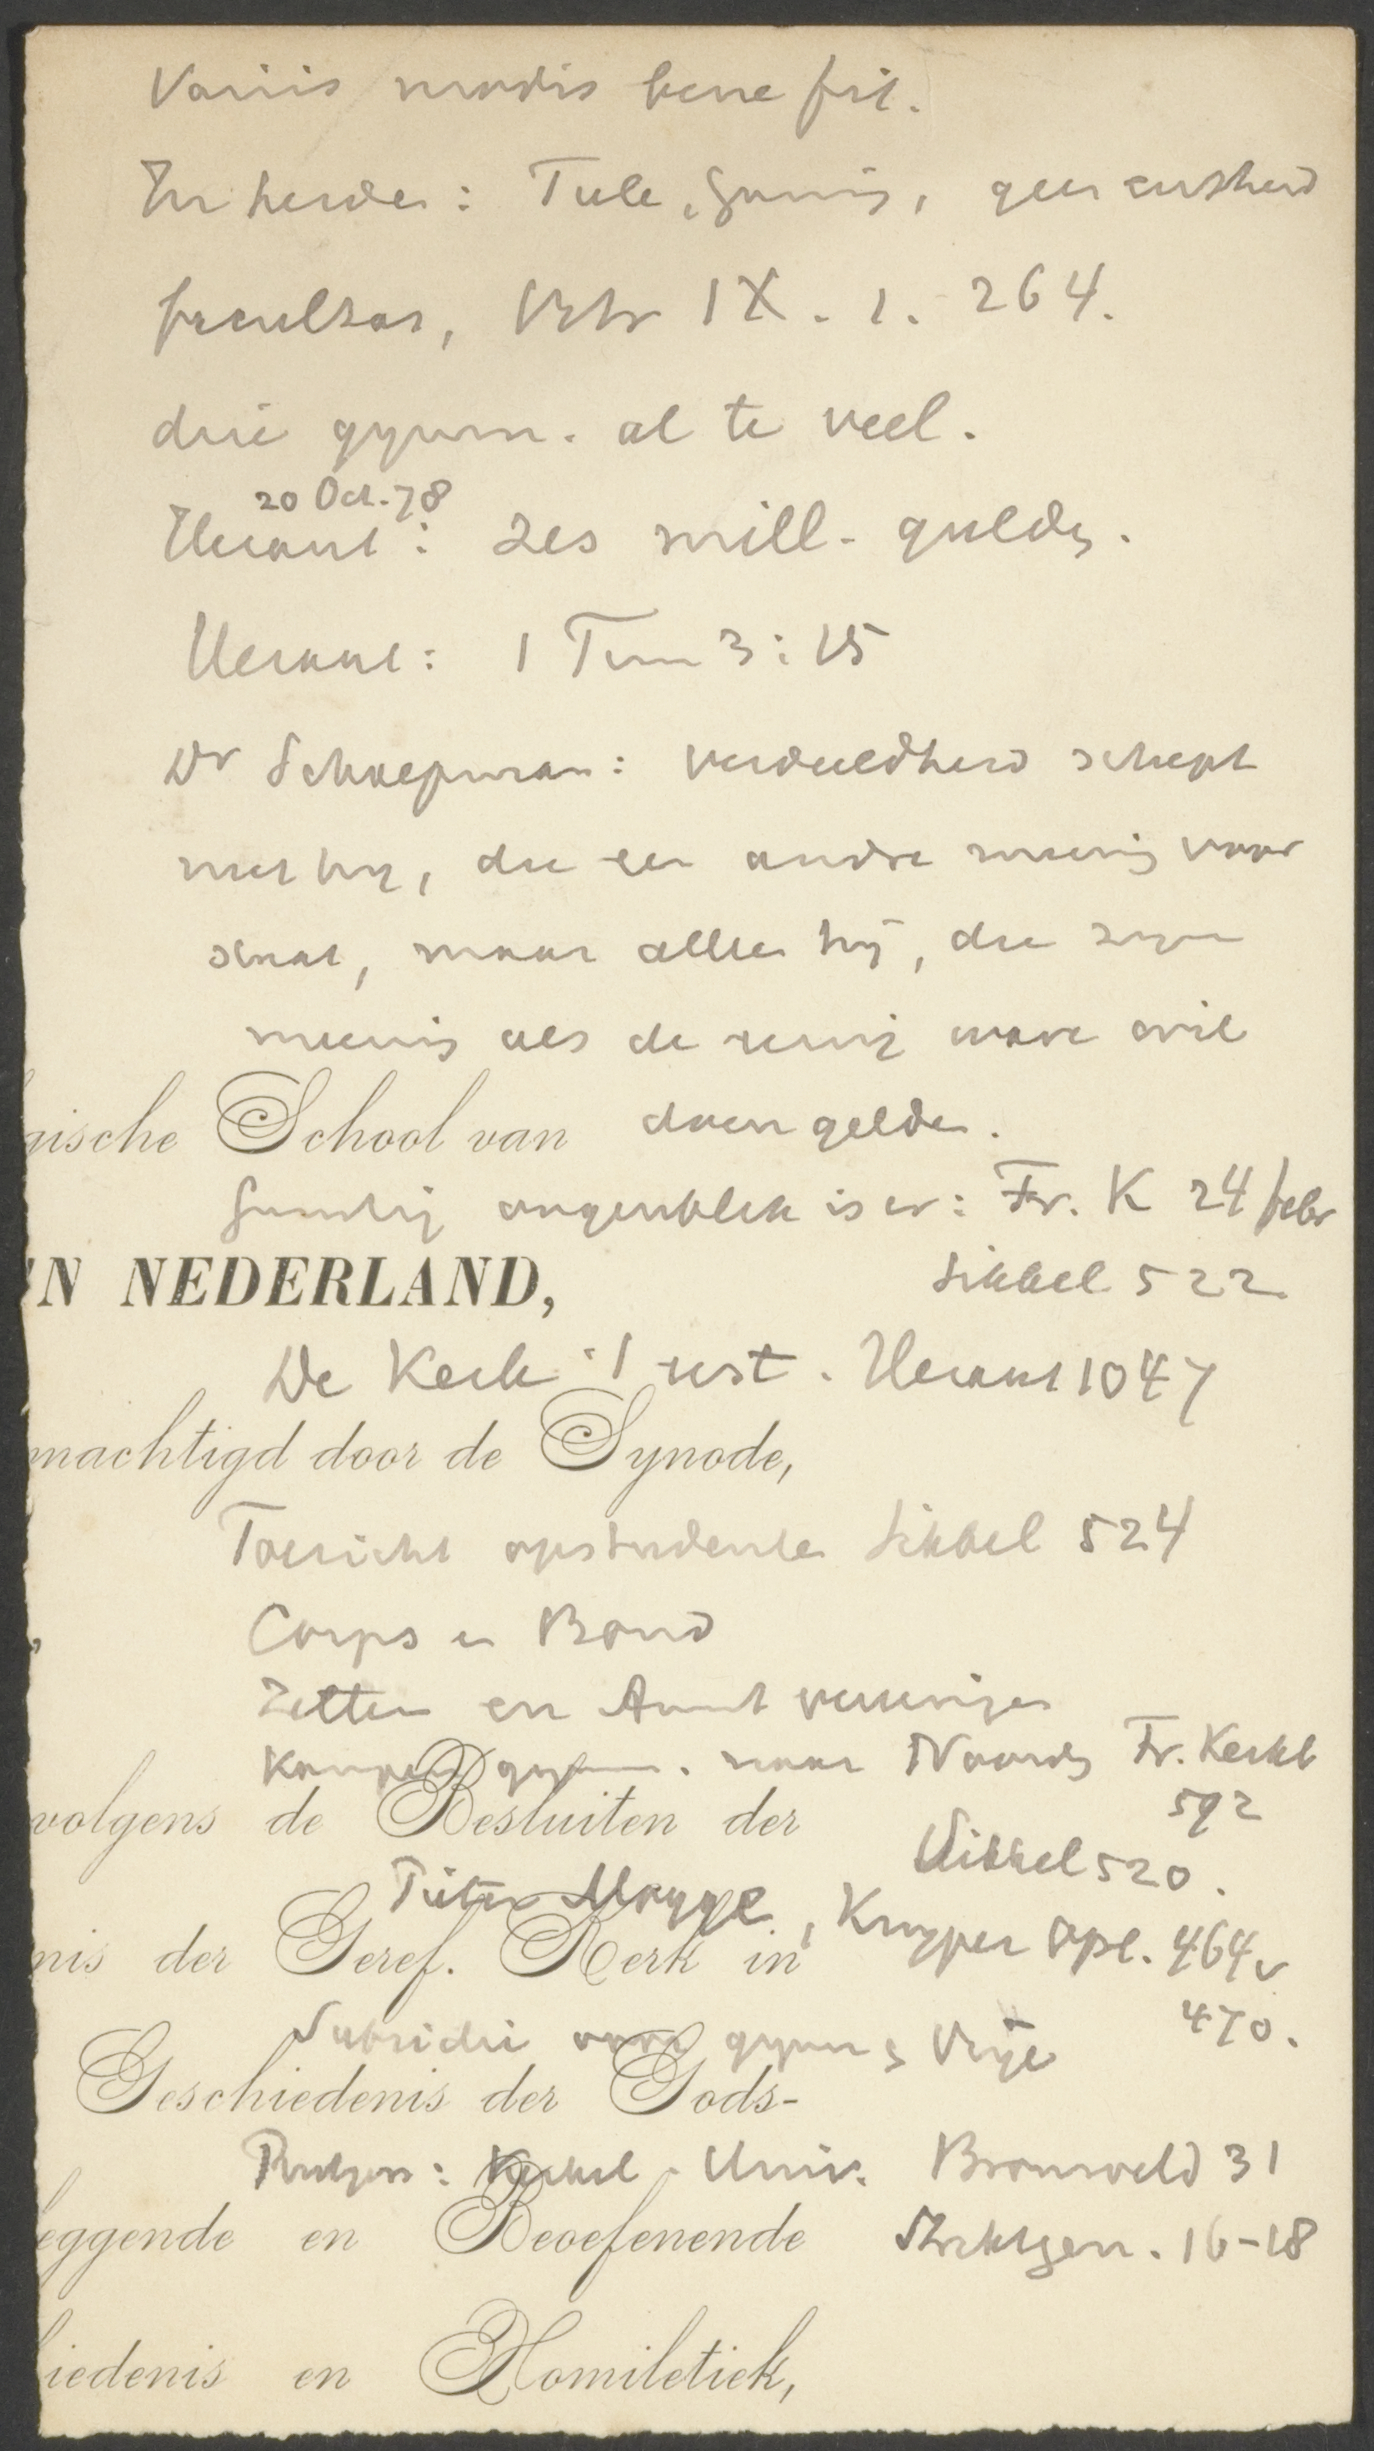 Variis modis bene fit.
Eenheid: Tule, Gunnig, geen eenheid
facultas, Vrb IX. 1. 264.
drie gymn. al te veel.
20 Oct. 78
Heraut: zes mill. guldg.
Heraut: 1 Tim 3:15
Dr Schaepman: verdeeldheid schept
niet hij, die een andre meenig voor
staat, maar alleen hij, die zijn
meenig als de eenig ware wil
gische School van doen gelden.
Gunstig oogenblik is er: Fr. K 24 febr
N NEDERLAND,
Sikkel 522
De Kerk 't eerst. Heraut 1047
machtigd door de Synode,
Toezicht op studenten Sikkel 524
Corps en Bond
Zetten en Arent vereenigen
Kampen gymn. naar Noordg Fr. Kerkb
592
volgens de Besluiten der
Sikkel 520.
Pieter, Kuyper Opl. 464v
nis der Geref. Kerk in
470.
Subsidie voor gymn Vrije
Geschiedenis der Gods-
Rutgers: Kerkel. Univ. Bronsveld 31
eggende en Beoefenende Striktgen. 16-18
iedenis en Homiletiek,